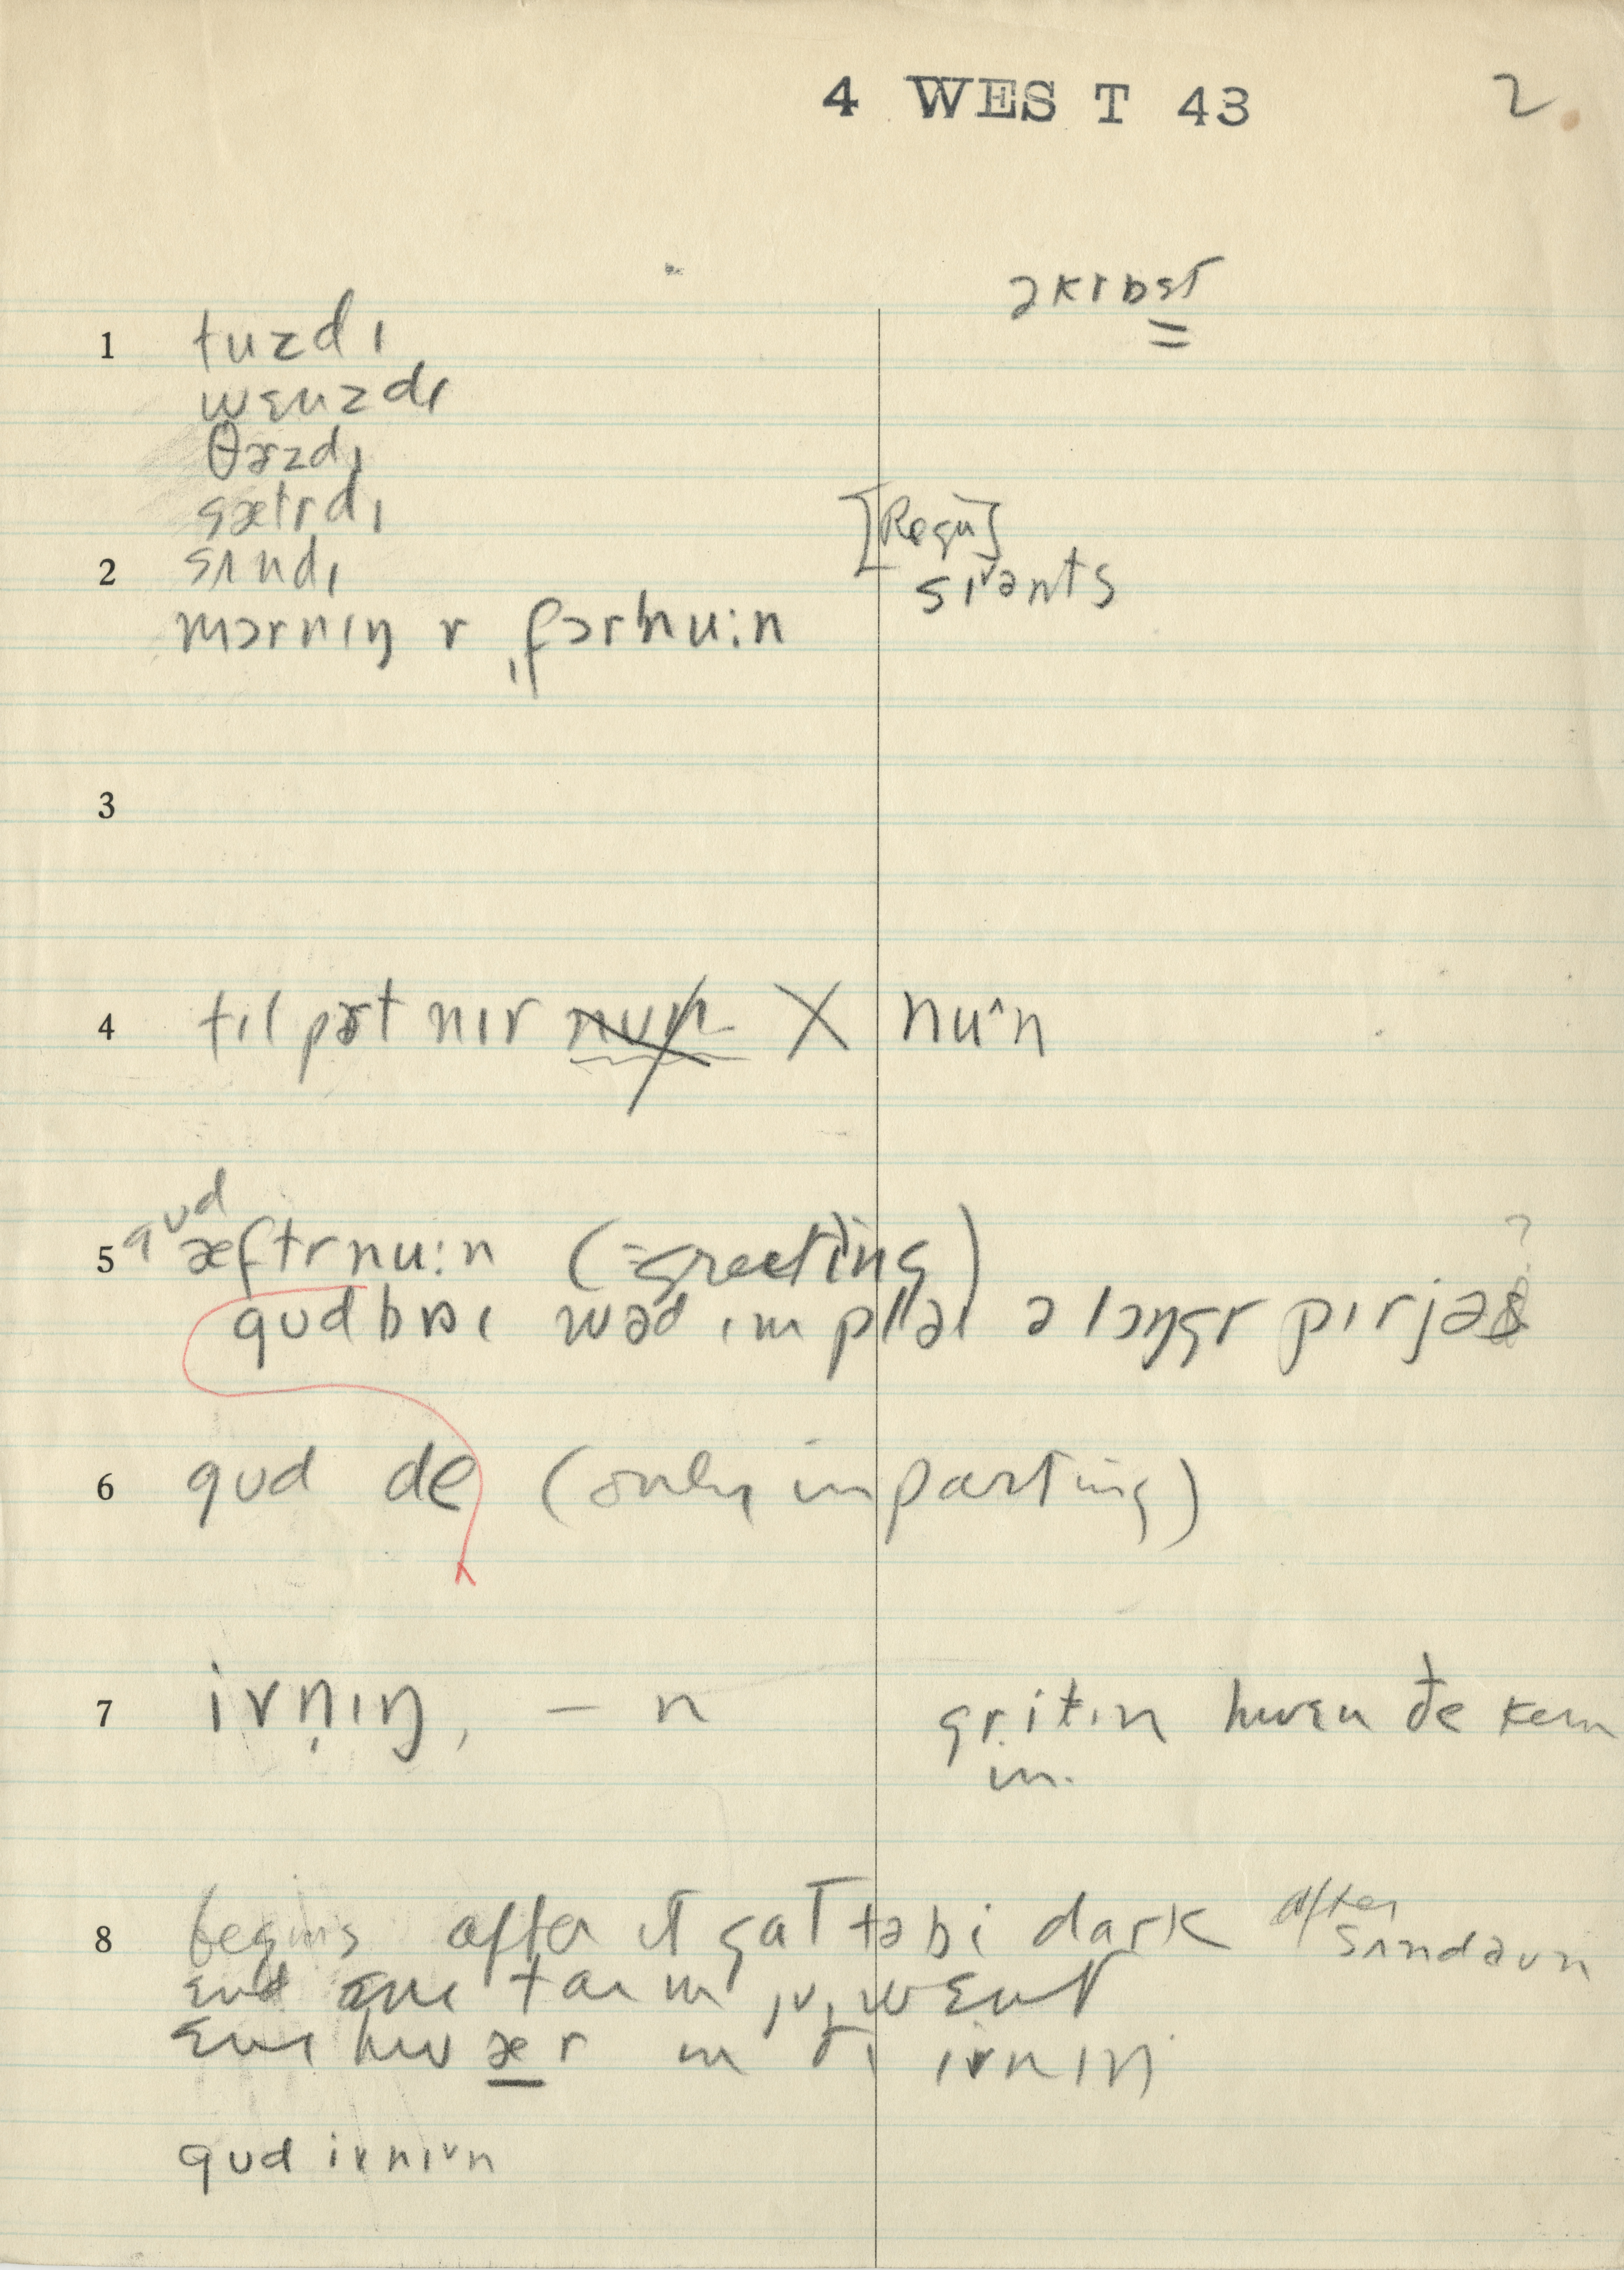 4 WEST 43 2.
əkrɒst
1 tuzdɪ
wɛnzdɪ
θɚzdɪ
sætrdɪ
2 sʌndɪ
[Regu]
sɪvənts
mɔrnɪŋ r fɔrnu:n
3
4 tɪl pɚt nɪr nun X nuˆn
gud
5 æftrnu:n (=greeting)
gudbaɪ wəd ɪmplaɪ ə lɔŋgr pɪrjəd ?
6 gud de (only in parting)
7 ivn̩ɪŋ, – n gritɪn hwɛn ðe kem
in.
8 begins after it gat tə bi dark after
sʌndaun
ɛnd ɛnɪ taɪm ju wɛnt
ɛnɪ hwær ɪn ðɪ ivnɪŋ
gud ivnɪn